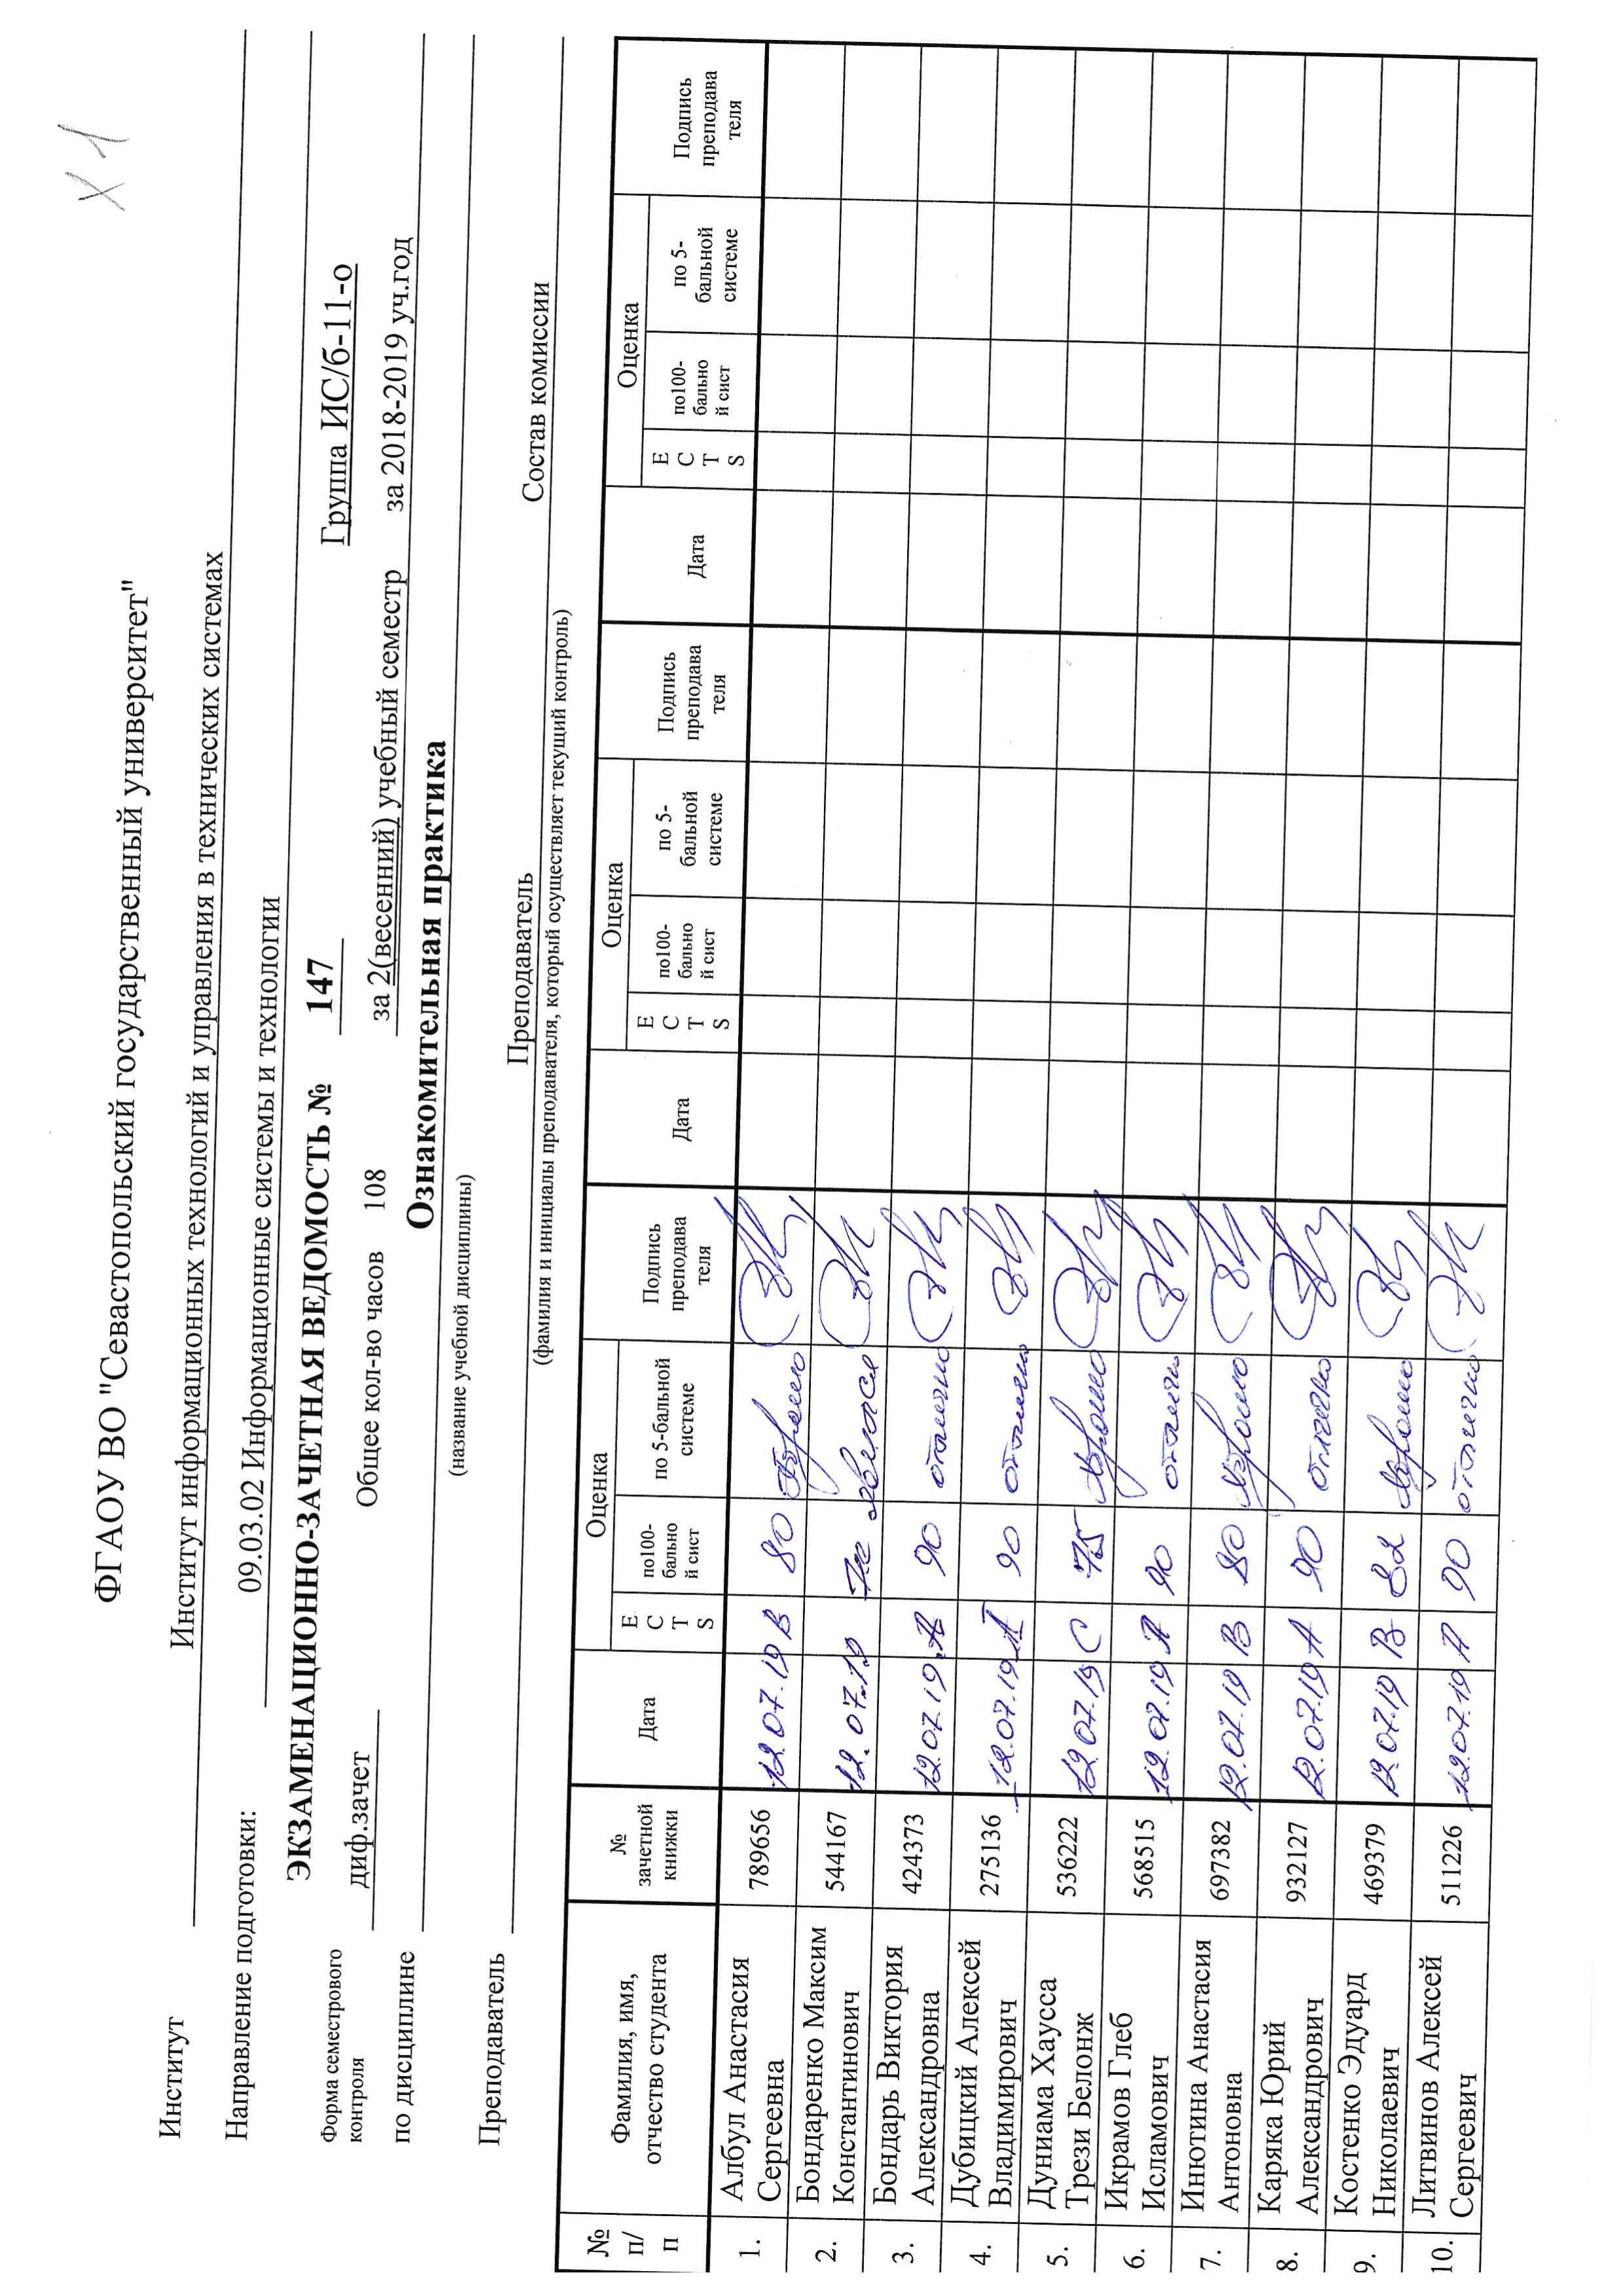 Х 1
ФГАОУ ВО "Севастопольский государственный университет"
Институт Институт информационных технологий и управления в технических системах
Направление подготовки: 09.03.02 Информационные системы и технологии
ЭКЗАМЕНАЦИОННО-ЗАЧЕТНАЯ ВЕДОМОСТЬ № 147 Группа ИС/б-11-о
Форма семестрового
контроля диф.зачет Общее кол-во часов 108 за 2(весенний) учебный семестр за 2018-2019 уч.год
по дисциплине Ознакомительная практика
(название учебной дисциплины)
Преподаватель Преподаватель Состав комиссии
(фамилия и инициалы преподавателя, который осуществляет текущий контроль)
№ п/п Фамилия, имя, отчество студента № зачетной книжки Дата Оценка ECTS по100-бально й сист по 5-бальной системе Подпись преподава теля Дата Оценка ECTS по100-бально й сист по 5-бальной системе Подпись преподава теля Дата Оценка ECTS по100-бально й сист по 5-бальной системе Подпись преподава теля
1. Албул Анастасия Сергеевна 789656 12.07.19 В 80 хорошо
2. Бондаренко Максим Константинович 544167 12.07.19 не явился
3. Бондарь Виктория Александровна 424373 12.07.19 А 90 отлично
4. Дубицкий Алексей Владимирович 275136 12.07.19 А 90 отлично
5. Дуниама Хаусса Трези Белонж 536222 12.07.19 С 75 хорошо
6. Икрамов Глеб Исламович 568515 12.07.19 А 90 отлично
7. Инютина Анастасия Антоновна 697382 12.07.19 В 80 хорошо
8. Каряка Юрий Александрович 932127 12.07.19 А 90 отлично
9. Костенко Эдуард Николаевич 469379 12.07.19 В 82 хорошо
10. Литвинов Алексей Сергеевич 511226 12.07.19 А 90 отлично